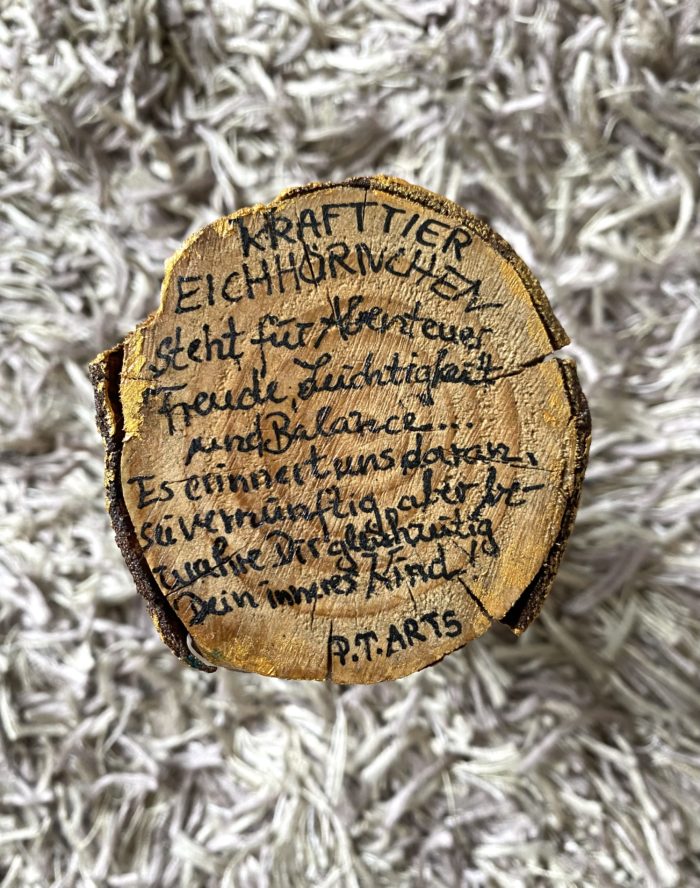 KRAFTTIER
EICHHÖRNCHEN
Steht für Abenteuer
Freude, Leichtigkeit
und Balance...
Es erinnert uns daran,
sei vernünftig, aber be-
wahre Dir gleichzeitig
Dein inneres Kind!
P.T.ARTS